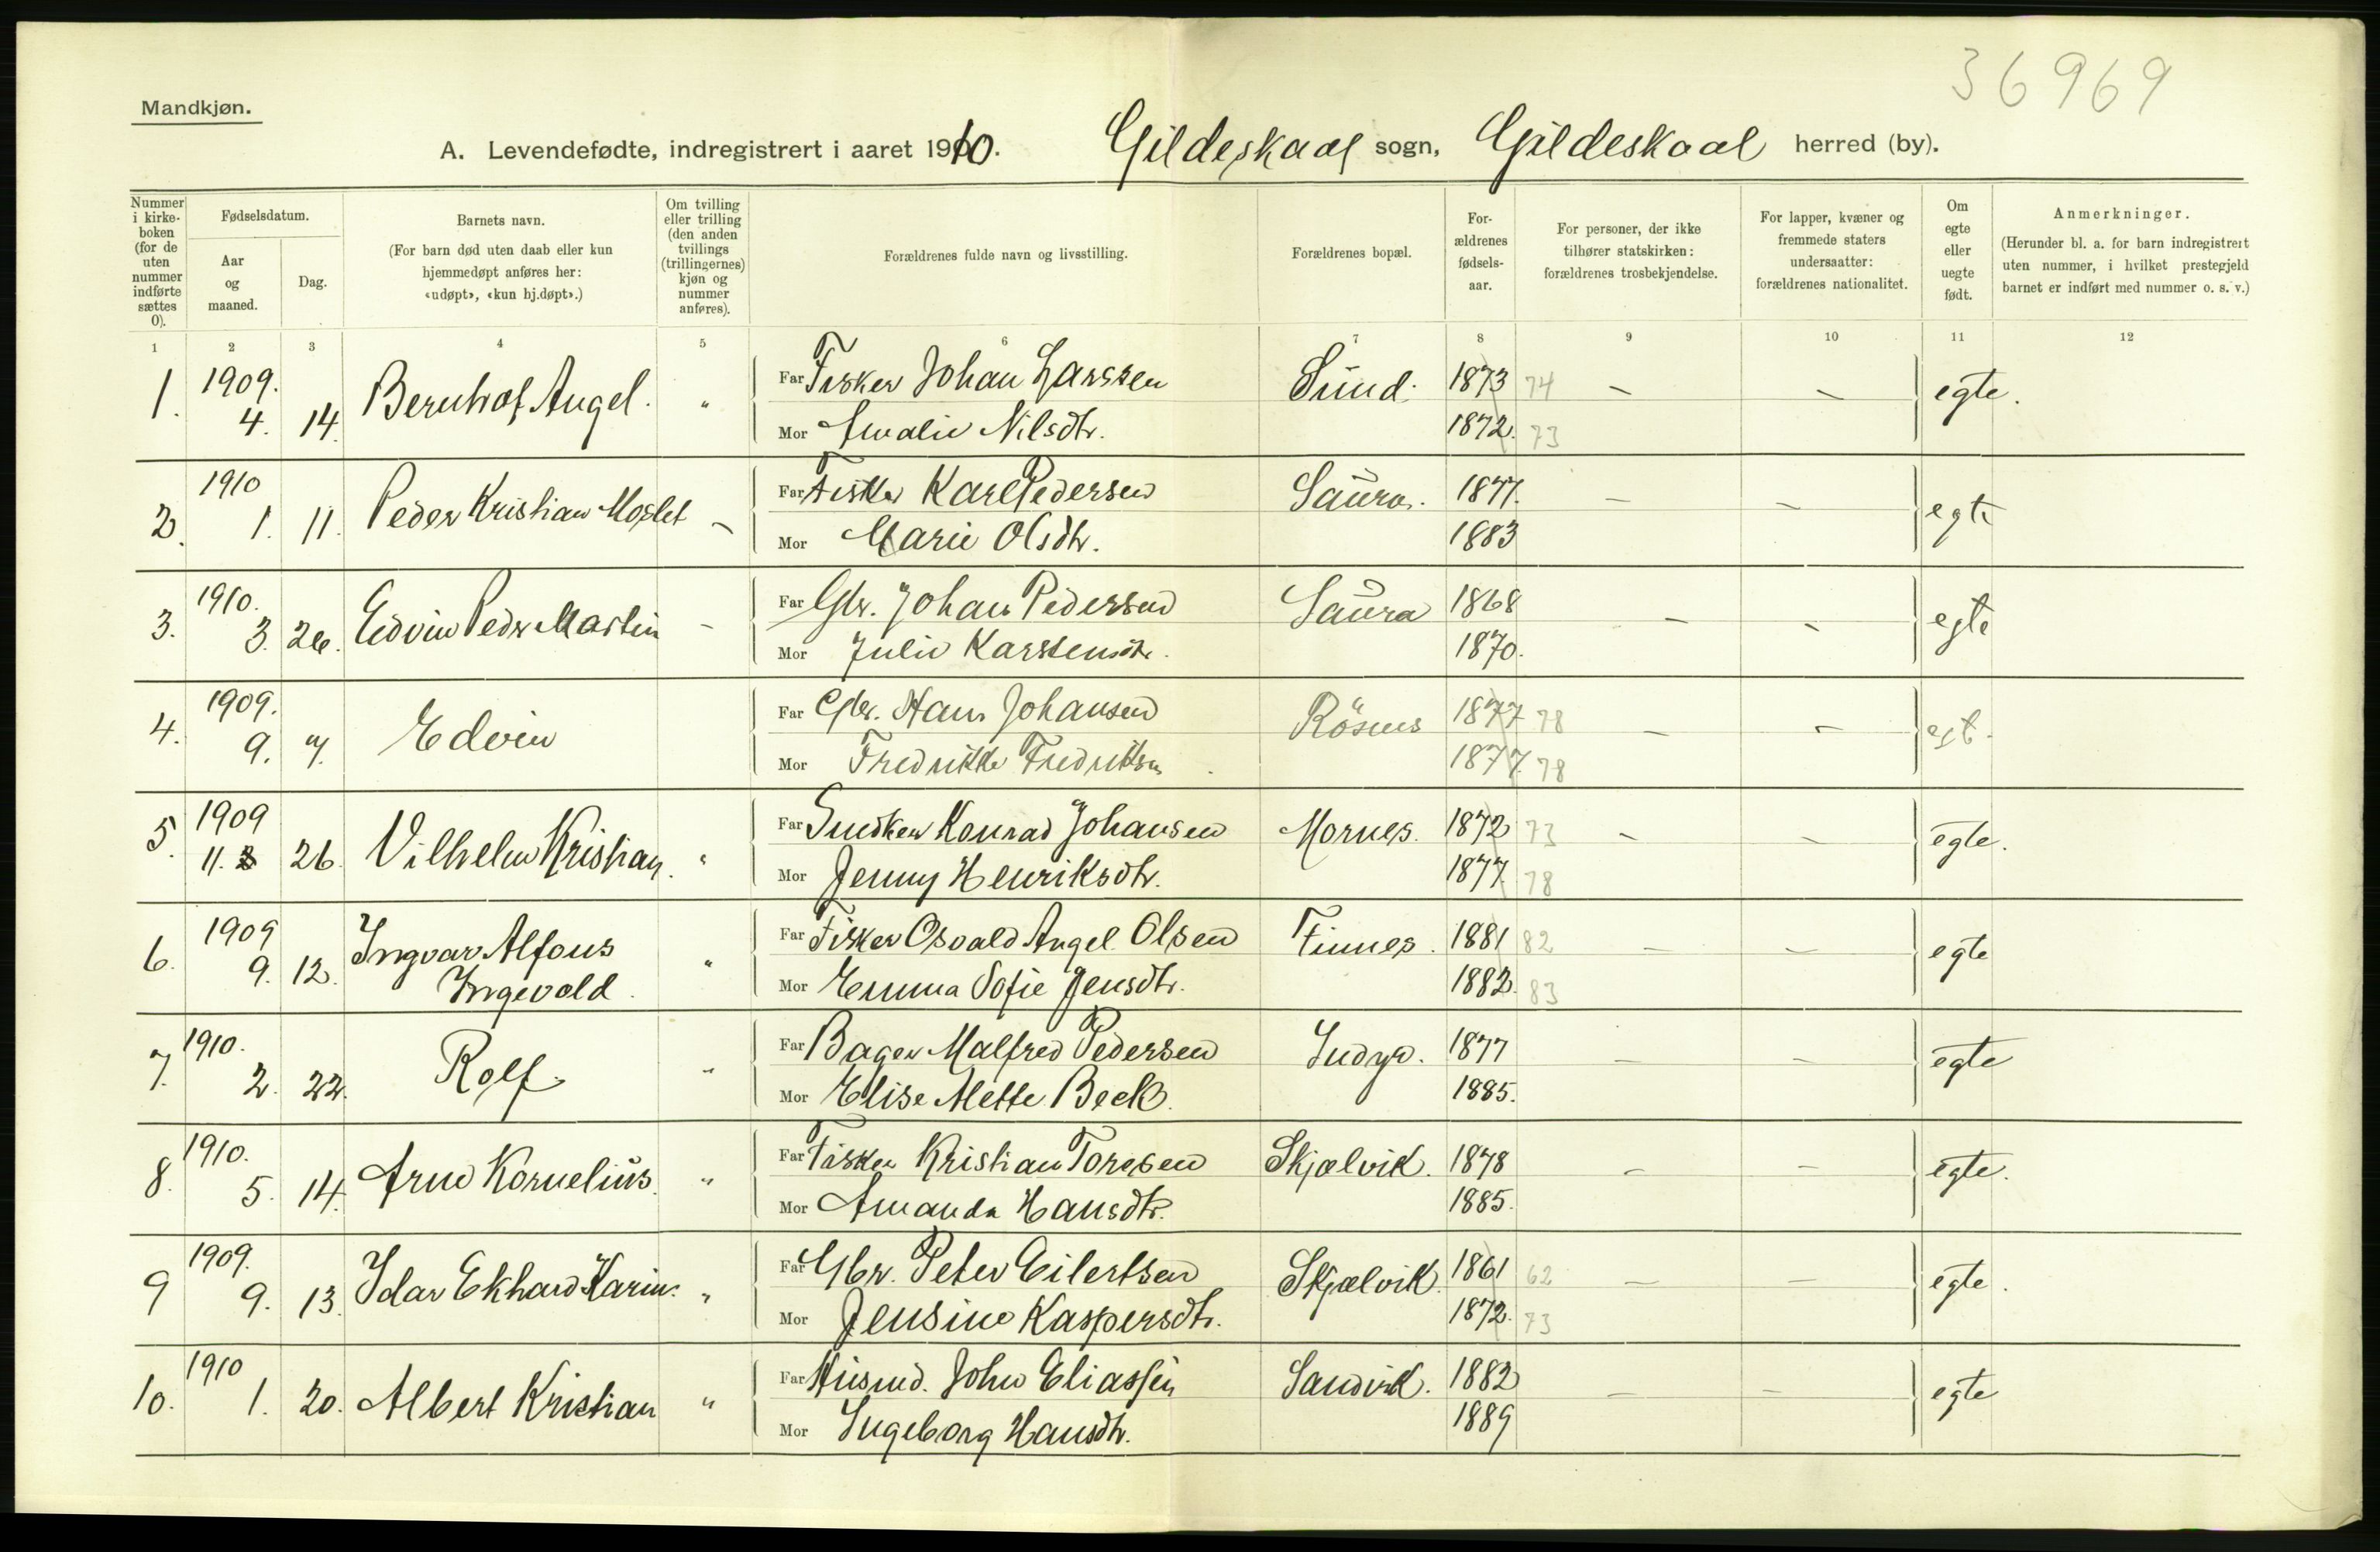 36969
Mandkjøn.
A. Levendefødte, indregistrert i aaret 1910. Gildeskaal sogn, Gildeskaal herred (by).
Nummer i kirke-boken (for de uten nummer indførte sættes 0).
Fødselsdatum.
Aar og maaned.
Dag.
Barnets navn.
(For barn død uten daab eller kun hjemmedøpt anføres her: «udøpt», «kun hj.døpt».)
Om tvilling eller trilling (den anden tvillings (trillingernes) kjøn og nummer anføres).
Forældrenes fulde navn og livsstilling.
Forældrenes bopæl.
For-ældrenes fødsels-aar.
For personer, der ikke tilhører statskirken: forældrenes trosbekjendelse.
For lapper, kvæner og fremmede staters undersaatter: forældrenes nationalitet.
Om egte eller uegte født.
Anmerkninger.
(Herunder bl. a. for barn indregistrert uten nummer, i hvilket prestegjeld barnet er indført med nummer o. s. v.)
1 2 3 4 5 6 7 8 9 10 11 12
1. 1909. 4. 14. Bernhof Angel. " Far Fisker Johan Larssen Sund. 1873 74 - - egte.
Mor Amalie Nilsdtr. 1872. 73
2. 1910 1. 11. Peder Kristian Moslet - Far Fisker Karl Pedersen Saura. 1877. - - egte
Mor Marie Olsdtr. 1883
3. 1910. 3. 26. Edvin Peder Martin - Far Gbr. Johan Pedersen Saura 1868 - - egte
Mor Julie Karstensdtr. 1870.
4. 1909. 9. 7. Edvin Far Gbr. Hans Johansen Røsnes 1877 78 - - egt.
Mor Fredrikke Fredriksen 1877. 78
5. 1909 11. 26. Vilhelm Kristian. " Far Snedker Konrad Johansen Mornes. 1872 73 - - egte.
Mor Jenny Henriksdtr. 1877. 78
6. 1909 9. 12. Ingvar Alfons Ingevald. " Far Fisker Osvald Angel Olsen Finnes. 1881 82 - - egte
Mor Emma Sofie Jensdtr. 1882. 83
7. 1910. 2. 22. Rolf. " Far Bager Malfred Pedersen Indyr. 1877 - - egte
Mor Elise Mette Beck. 1885.
8. 1910. 5. 14. Arne Kornelius. " Far Fisker Kristian Toresen Skjælvik. 1878 - - egte.
Mor Amanda Hansdtr. 1885.
9 1909. 9. 13. Idar Ekhard Karin. " Far Gbr. Peter Eilertsen Skjælvik. 1861 62 - - egte.
Mor Jensine Kaspersdtr. 1872. 73
10. 1910 1. 20. Albert Kristian " Far Husmd. John Eliassen Sandvik. 1882 - - egte
Mor Ingeborg Hansdtr. 1889